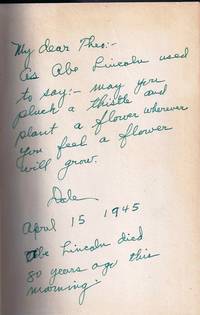 My dear Theo:-
As Abe Lincoln used
to say:- may you
pluck a thistle and
plant a flower wherever
you feel a flower
will grow.
Dale
April 15 1945
Abe Lincoln died
80 years ago this
morning-